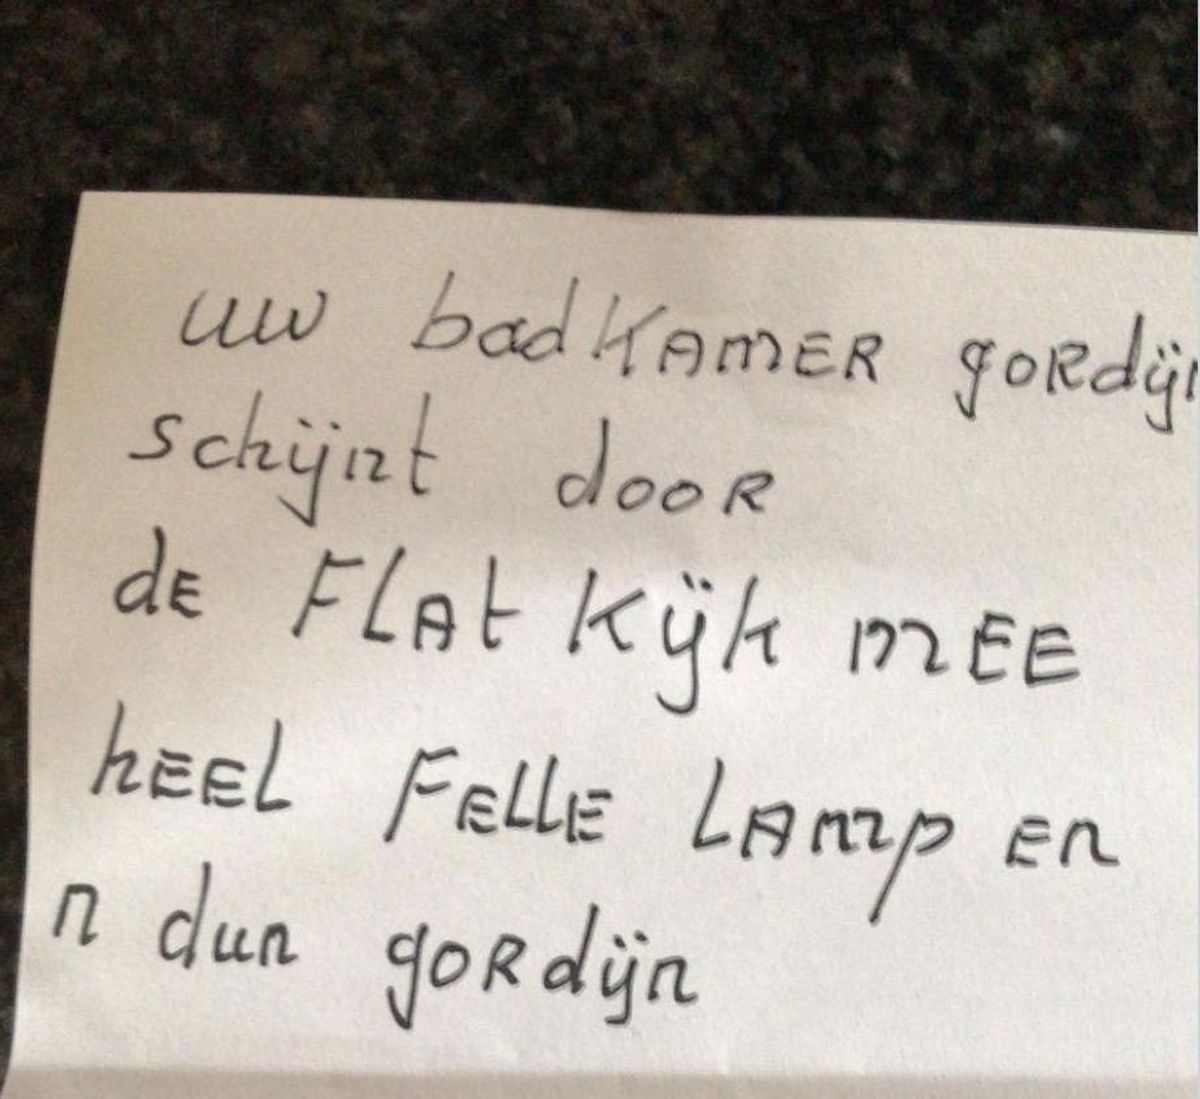 uw badkamer gordijn
schijnt door
de Flat kijk mee
heel Felle Lamp en
n dun gordijn